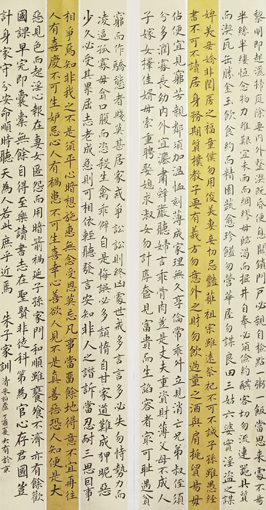 黎明即起灑掃庭除要內外整潔既昏便息關鎖門戶必親自檢點一粥一飯當思來處不易
半絲半縷恒念物力維艱宜未雨而綢繆毋臨渴而掘井自奉必須儉約宴客切勿流連器具質
而潔瓦缶勝金玉飲食約而精園蔬愈珍饈勿營華屋勿謀良田三姑六婆實淫盜之媒
婢美妾嬌非閨房之福童僕勿用俊美妻妾切忌艷妝祖宗雖遠祭祀不可不誠子孫雖愚經
書不可不讀居身務期質樸教子要有義方勿貪意外之財勿飲過量之酒與肩挑貿易毋
佔便宜見貧苦親鄰須加溫恤刻薄成家理無久享倫常乖舛立見消亡兄弟叔侄須
分多潤寡長幼內外宜法肅辭嚴聽婦言乖骨肉豈是丈夫重資財薄父母不成人
子嫁女擇佳婿毋索重聘娶媳求淑女勿計厚奩見富貴而生諂容者最可恥遇貧
窮而作驕態者賤莫甚居家戒爭訟訟則終凶處世戒多言言多必失勿恃勢力而
凌逼孤寡毋貪口腹而恣殺生禽乖僻自是悔誤必多頹惰自甘家道難成狎昵惡
少久必受其累屈志老成急則可相依輕聽發言安知非人之譖訴當忍耐三思因事
相爭焉知非我之不是須平心暗想施惠無念受恩莫忘凡事當留餘地得意不宜再往
人有喜慶不可生妒忌心人有禍患不可生喜幸心善欲人見不是真善惡恐人知便是大
惡見色而起淫心報在妻女匿怨而用暗箭禍延子孫家門和順雖饔飧不濟亦有餘歡
國課早完即囊橐無餘自得至樂讀書志在聖賢非徒科第為官心存君國豈
計身家守分安命順時聽天為人若此庶乎近焉 朱子家訓 大有於京